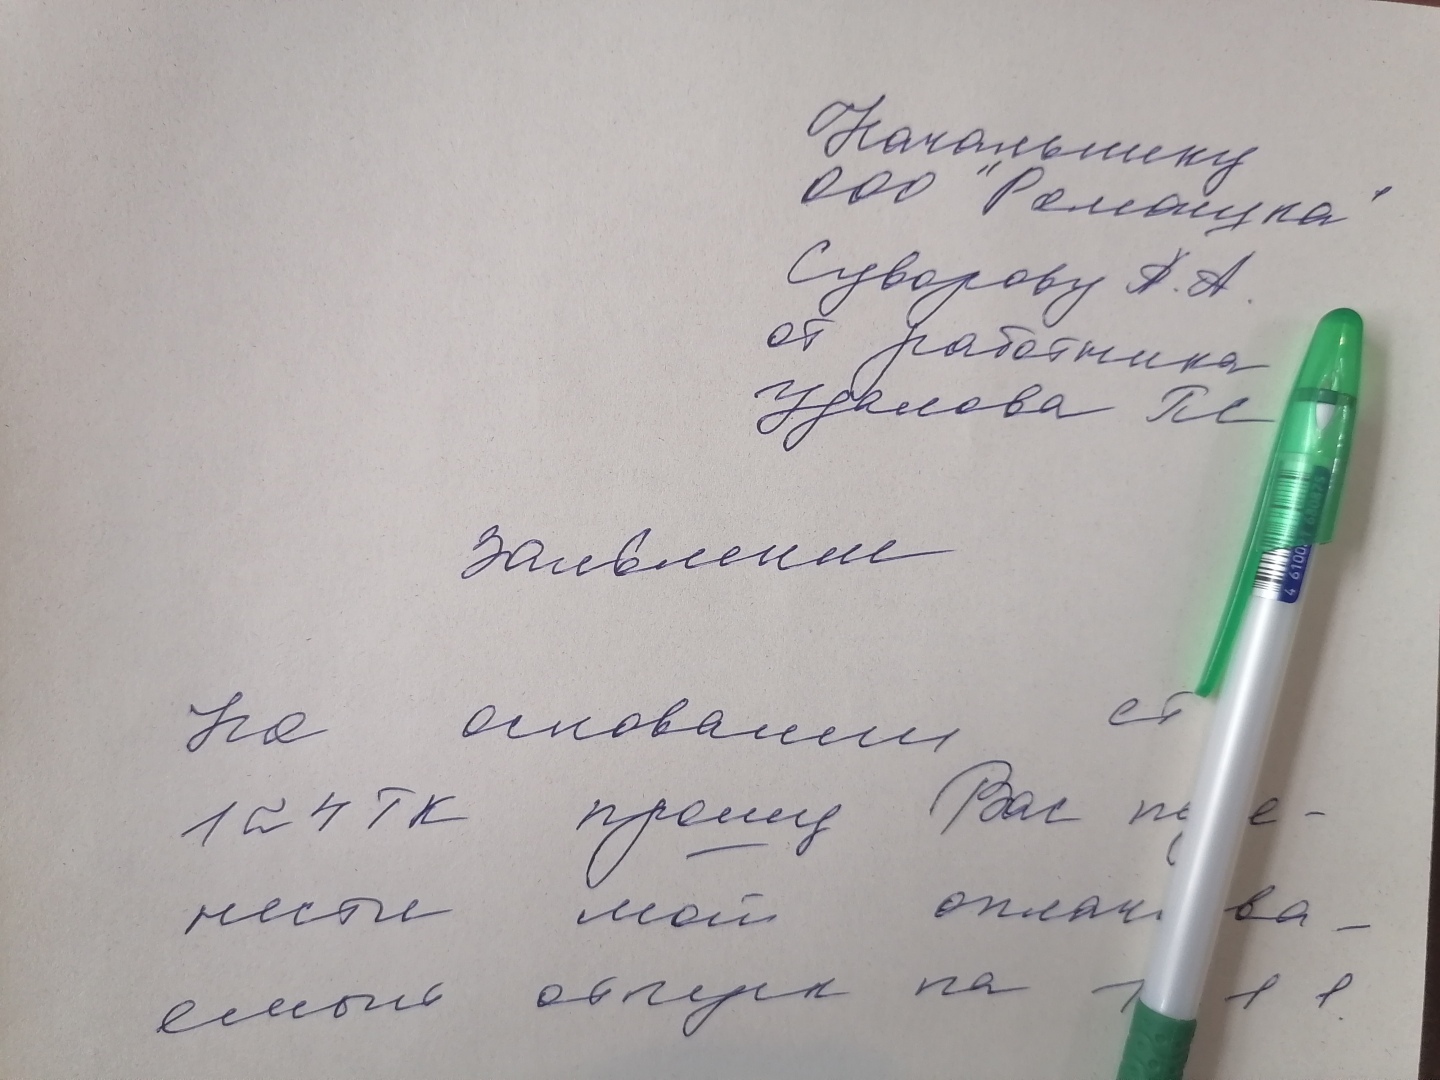 Начальнику
ООО "Ромашка"
Суворову А.А.
от работника
Удалова ПС
Заявление
На основании ст
124 ТК прошу Вас пере-
нести мой оплачива-
емый отпуск на
4 6100